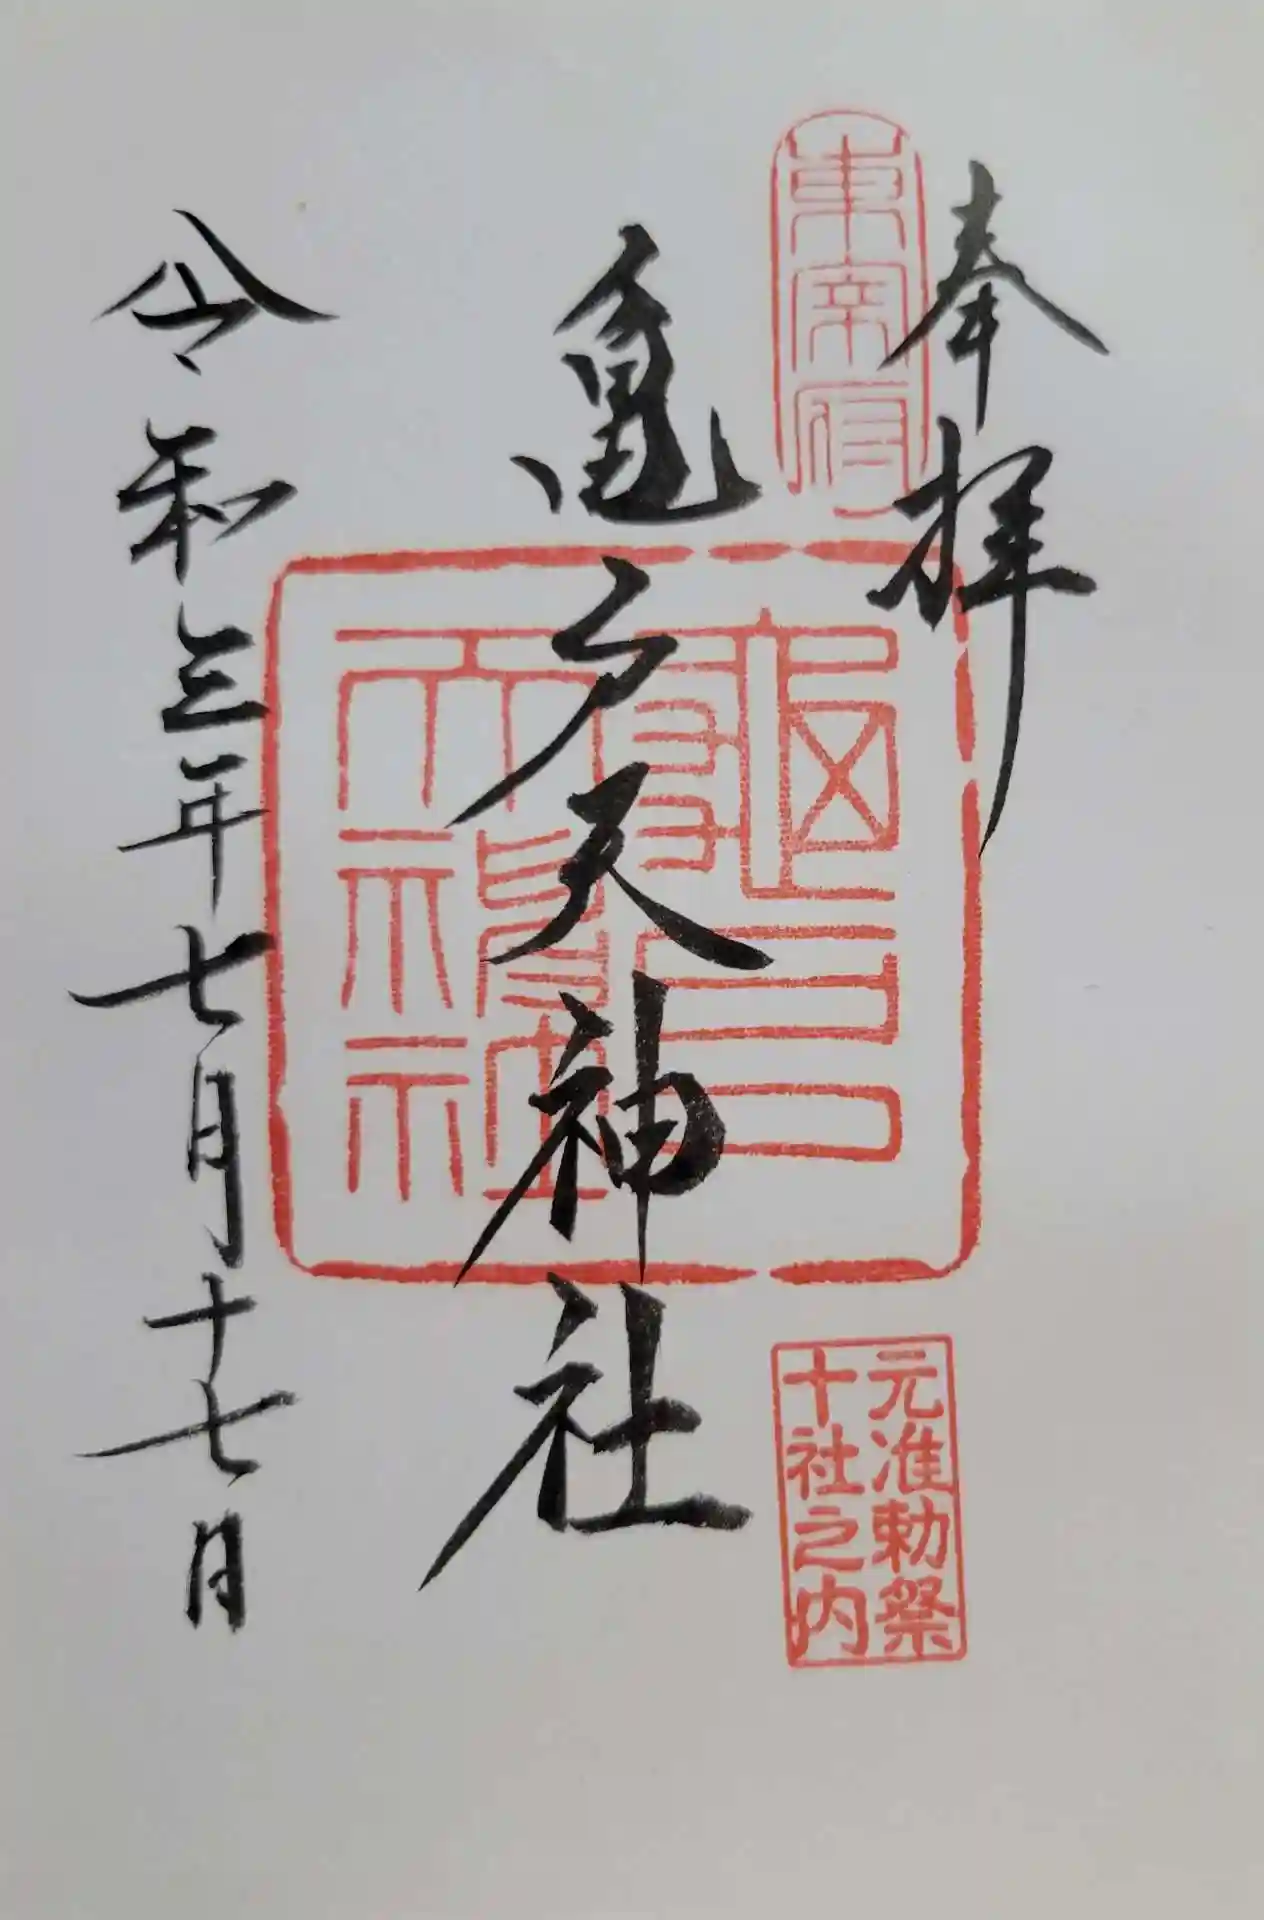 奉拝
東宰府
亀戸天神社
龜戸
天神社
元准勅祭
十社之内
令和三年七月十七日